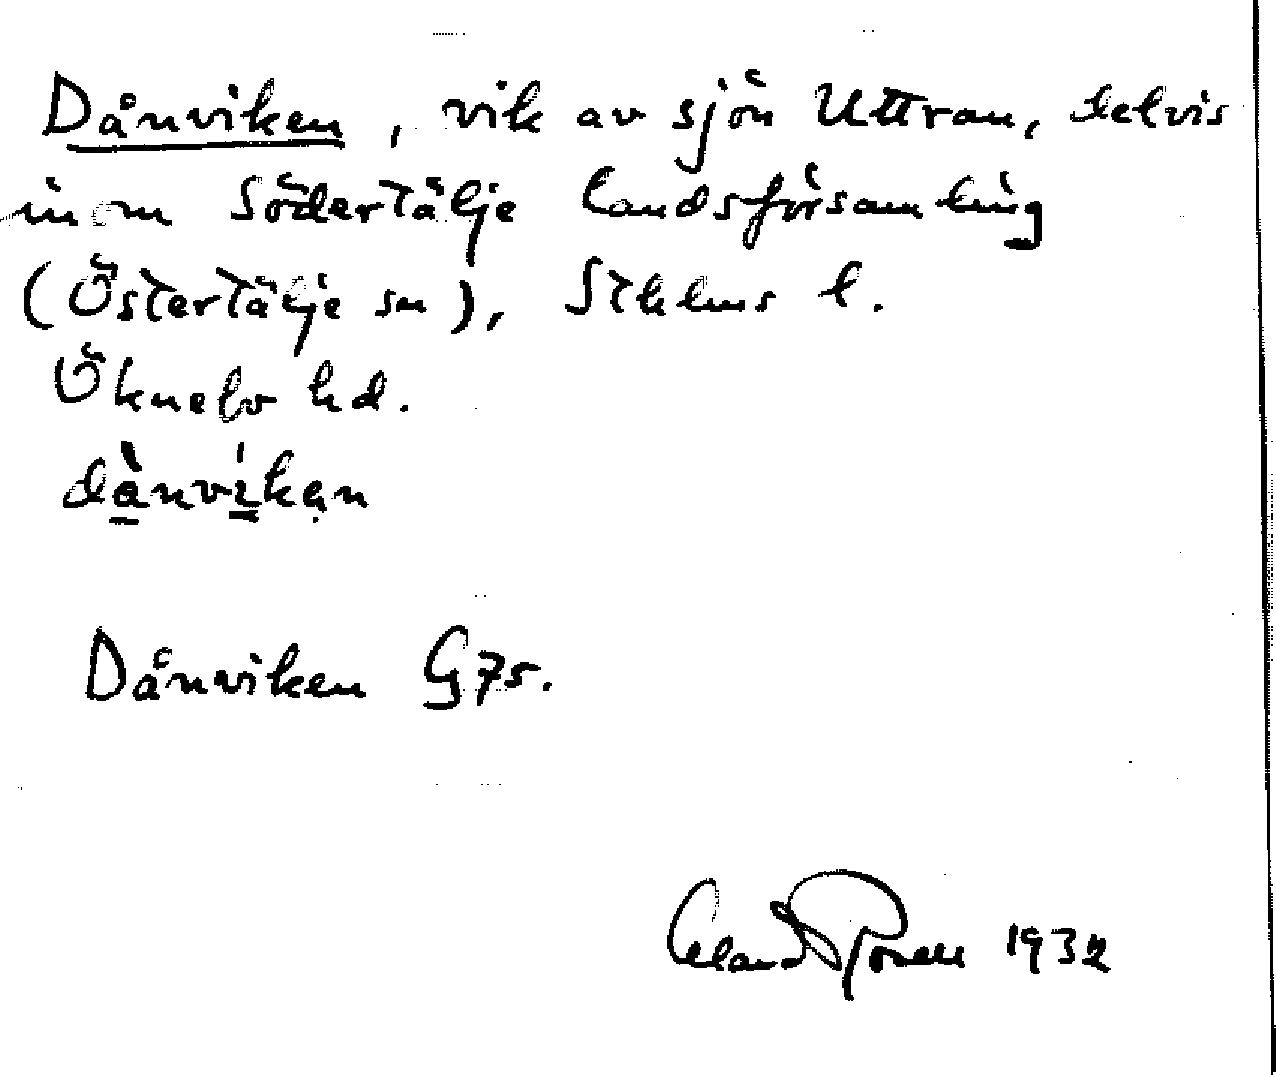 Dånviken, vik av sjön Uttran, delvis
inom Södertälje landsförsamling
(Östertälje sn), Sthlms l.
Öknebo hd.
dànvíkạn
Dånviken G75.
1932